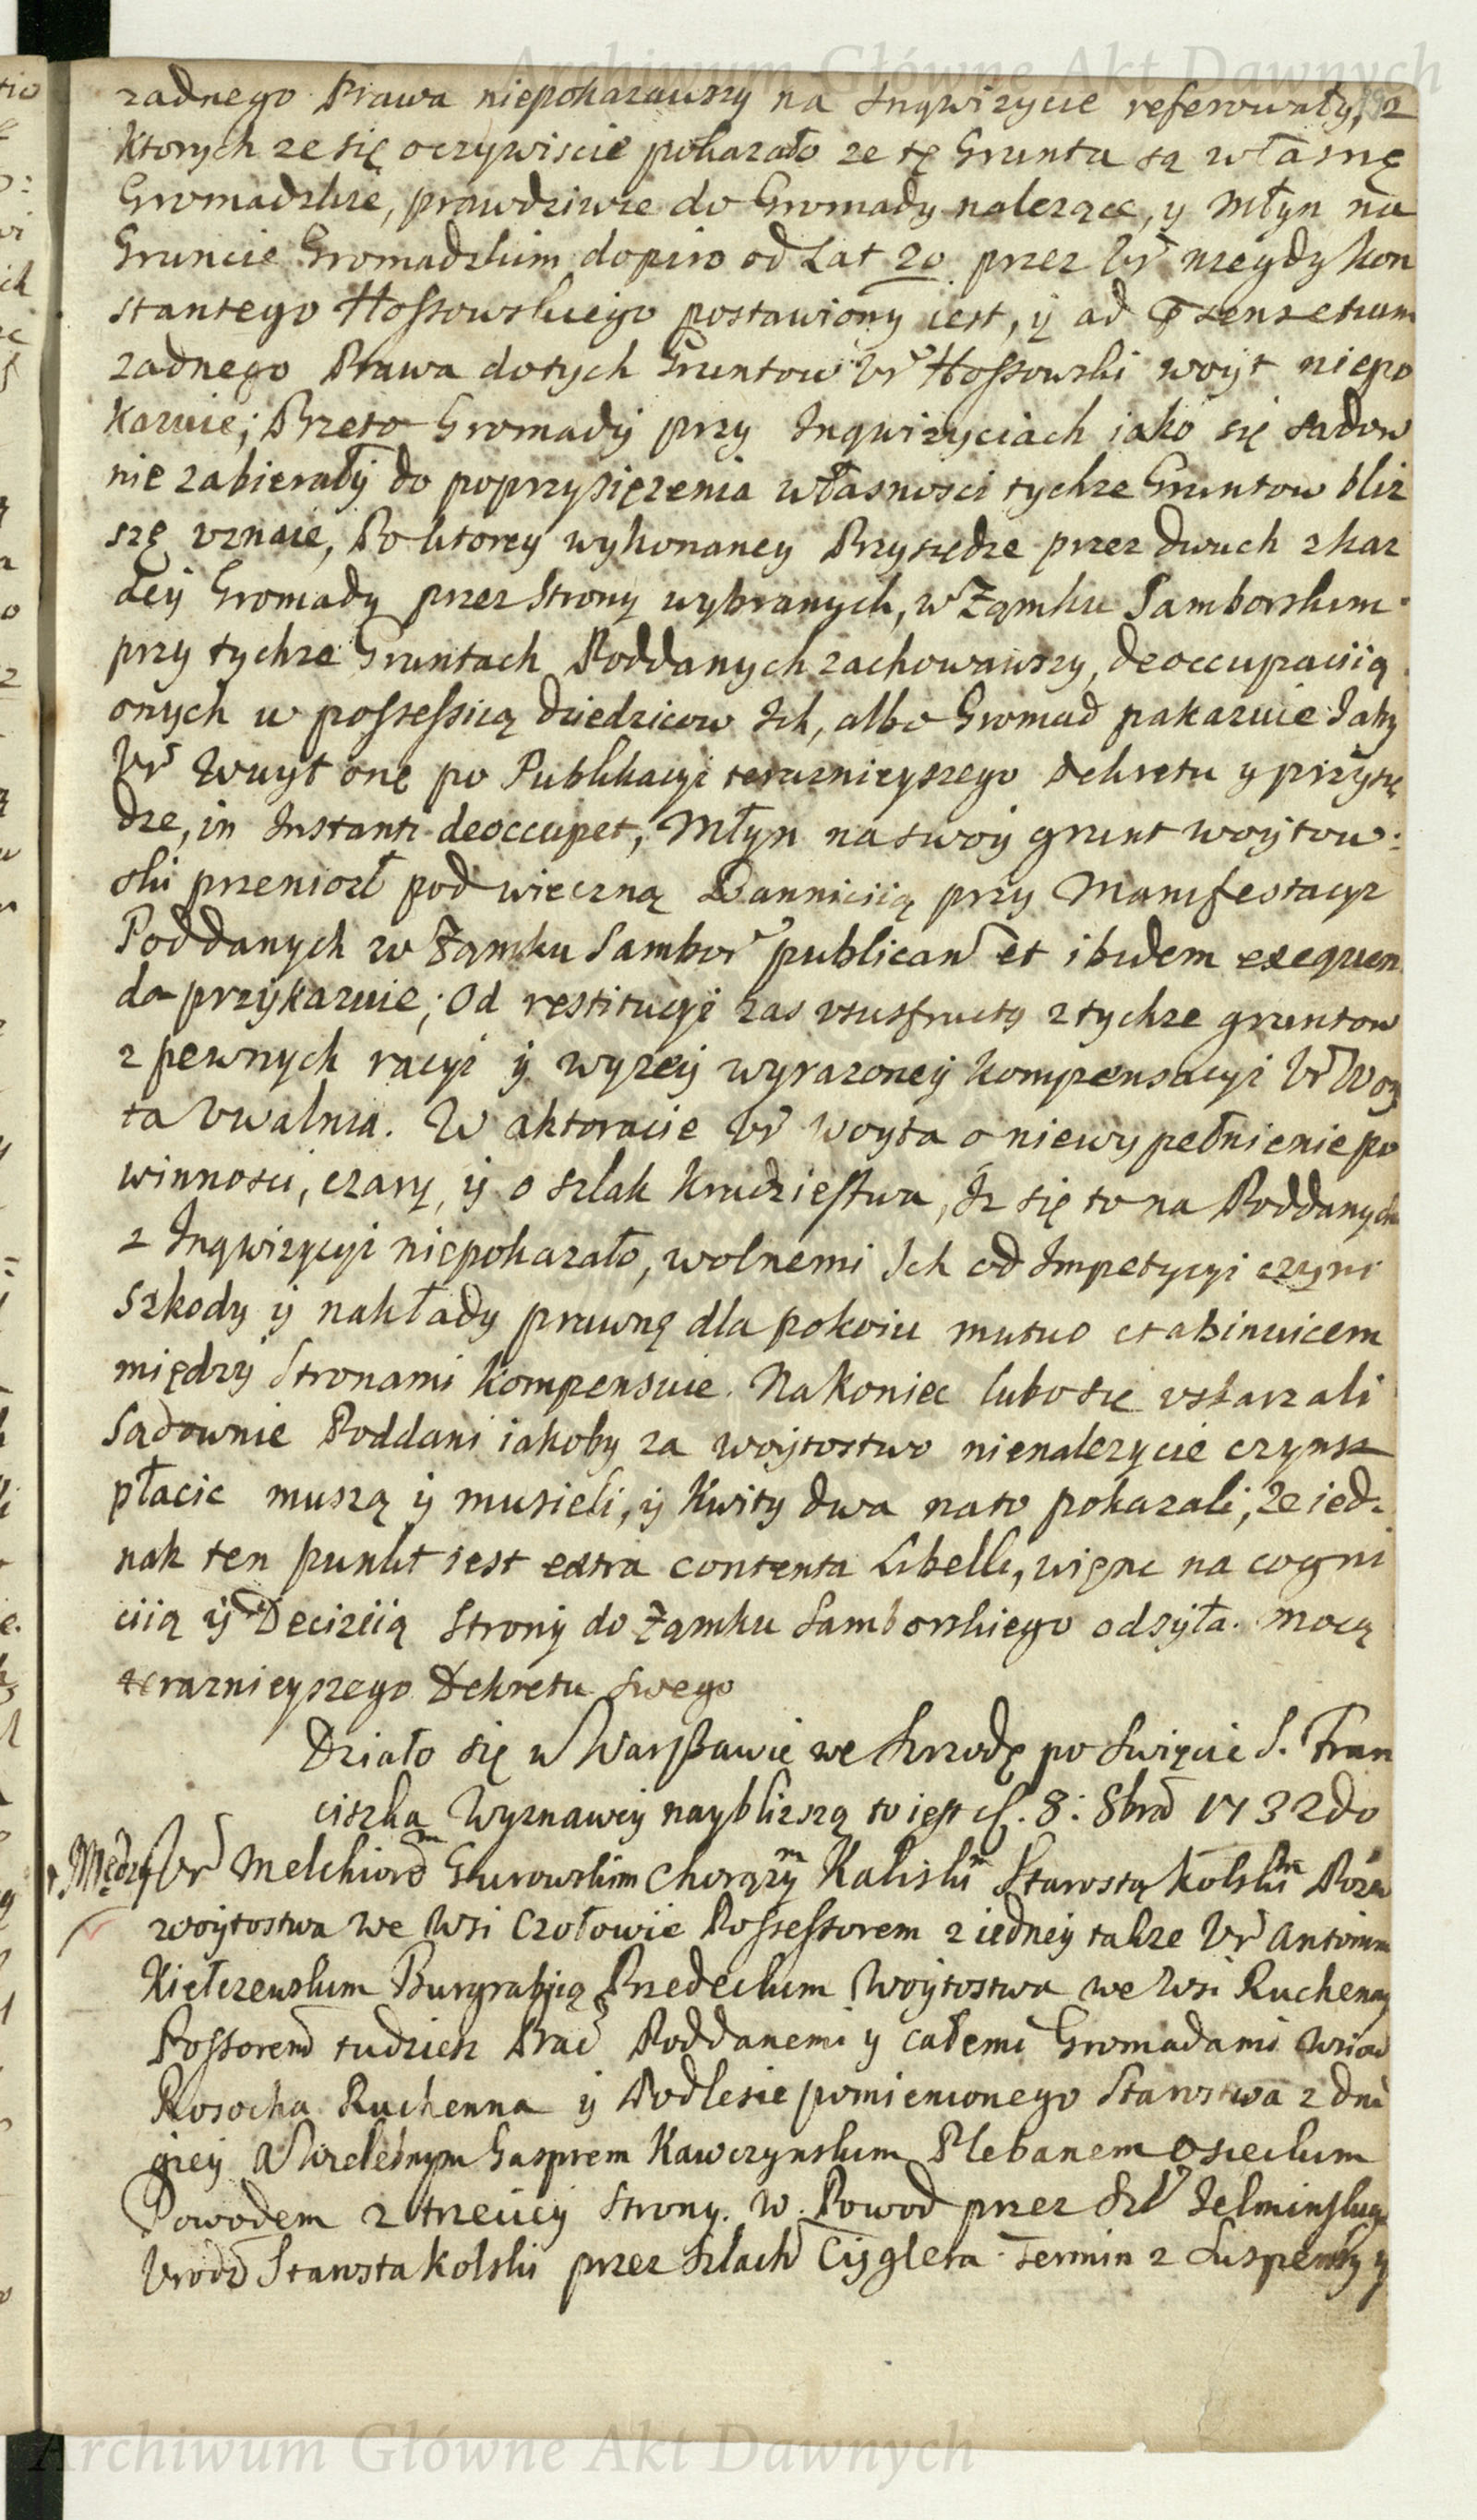 Archiwum Główne Akt Dawnych
zadnego Prawa niepokazawszy na Inqwizycie referowały, z
ktorych ze się oczywiscie pokazało ze tę Grunta są własnę
Gromadzkie, prawdziwie do Gromady nalezące, y Młyn na
Gruncie Gromadzkim dopiro od Lat 20 przez Ur niegdy Kon
stantego Hossowskiego postawiony iest, y ad praesens etiam
zadnego Prawa do tych Gruntow Ur Hossowski woyt niepo
kazuie; Przeto Gromady przy Inqwizyciach iako się sadow
nie zabierały do poprzysięzenia własnosci tychze Gruntow bliz
szę uznaie, Po ktorey wykonaney Przysiędze przez dwuch z kaz
dey Gromady przez Strony wybranych, w Zamku Samborskim
przy tychze Gruntach Poddanych zachowawszy, deoccupacyią
onych w possessią dziedzicow Ich, albo Gromad nakazuie Iaky
Ur Wuyt onę po Publikacyi teraznieyszego dekretu y przysię
dze, in Instanti deoccupet, Młyn na swoy grunt woytow:
ski przeniozł pod wieczną Bannicią przy Manifestacyi
Poddanych w Zamku Sambor publican et ibidem exequen
da przykazuie; Od restitucyi zas ususfructus z tychze gruntow
z pewnych racyi y wyzey wyrazoney kompensacyi Ur Woy
ta Uwalnia. W aktoracie Ur Woyta o niewypełnienie po
winnosci, czary, y o szlak kradziestwa, Iz się to na Poddanych
z Inqwizycyi niepokazało, wolnemi Ich od Impetycyi czyni
szkody y nakłady prawnę dla pokoiu mutuo et abinvicem
między Stronami kompensuie. Nakoniec lubo się uskarzali
Sadownie Poddani iakoby za woytostwo nienalezycie czynsz
płacic muszą y musieli, y kwity dwa nato pokazali, Ze ied:
nak ten punkt iest extra contenta Libelli, więnc na cogni
cyią y Decizyią Strony do Zamku Samborskiego odsyła. Mocą
teraznieyszego Dekretu swego
Działo się w Warszawie we Srzodę po Swięcie S. Fran
ciszka Wyznawcy naybliszszą to iest d. 8: 8bra 1732do
Między Ur Melchiorem Gurowskim Chorązym Kaliskim Starostą Kolskim
woytostwa we Wsi Czołowie Possessorem z iedney takze Ur Antonim
Kiełczewskim Burgrabią Przedeckim Woytostwa we Wsi Ruchenny
Possorem tudziesz Prac Poddanemi y całemi Gromadami Wsiow
Rosocha Ruchenna y Podlesie pomienionego Starostwa z dru
giey A Wielebnym Gasprem Kawczynskim Plebanem Osieckim
Powodem z trzeciey Strony. W. Powod przez Szl Jelminskiego
Urodz Starosta Kolski przez Szlach Cyglera Termin z Suspensy y
Archiwum Główne Akt Dawnych